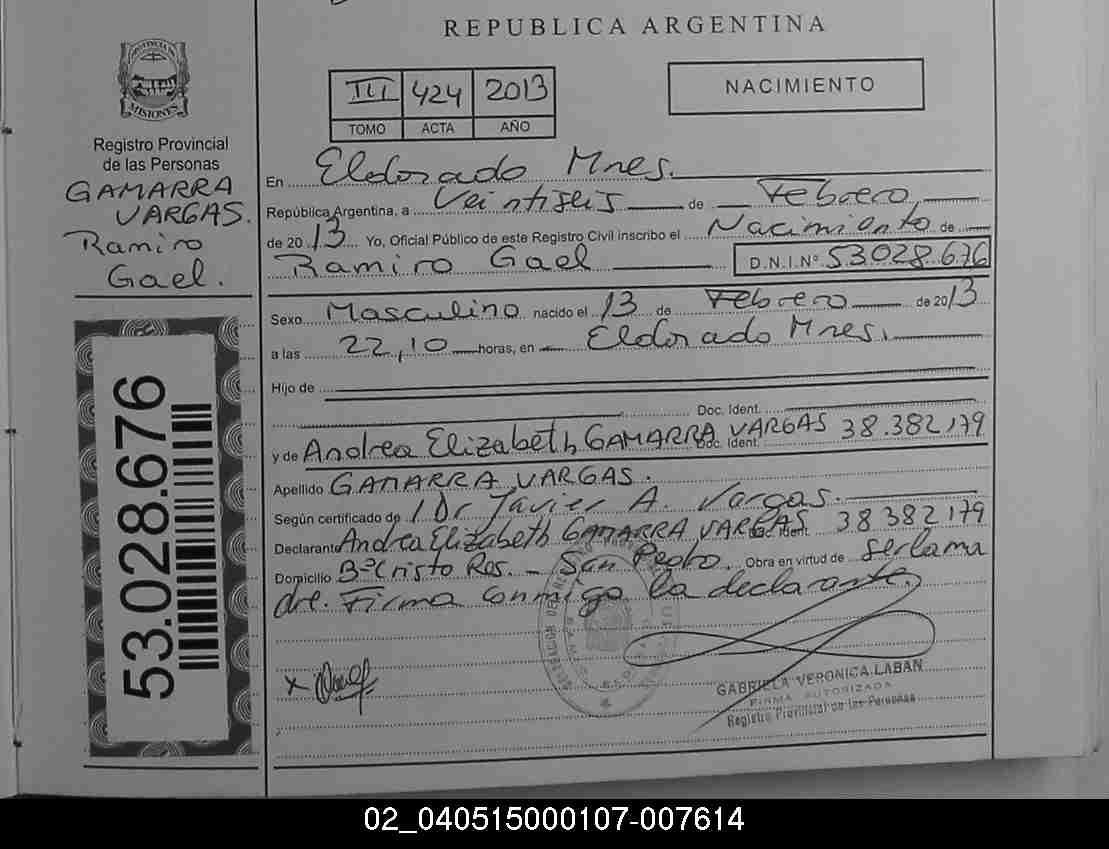 REPUBLICA ARGENTINA
PROVINCIA DE
MISIONES
Registro Provincial
de las Personas
GAMARRA
VARGAS.
Ramiro
Gael.
53.028.676
III 424 2013
TOMO ACTA AÑO
NACIMIENTO
En Eldorado Mnes.
República Argentina, a Veintiseis de Febrero
de 2013 Yo, Oficial Público de este Registro Civil inscribo el Nacimiento de
Ramiro Gael D.N.I.Nº 53.028.676
Sexo Masculino nacido el 13 de Febrero de 2013
a las 22,10 horas, en Eldorado Mnes.
Hijo de
Doc. Ident.
y de Andrea Elizabeth GAMARRA VARGAS Doc. Ident. 38.382.179
Apellido GAMARRA VARGAS.
Según certificado de Dr Javier A. Vargas.
Declarante Andrea Elizabeth GAMARRA VARGAS Doc. Ident. 38 382 179
Domicilio Bº Cristo Res. - San Pedro. Obra en virtud de ser la ma
dre. Firma conmigo la declarante.
x
GABRIELA VERONICA LABAN
FIRMA AUTORIZADA
Registro Provincial de las Personas
02_040515000107-007614